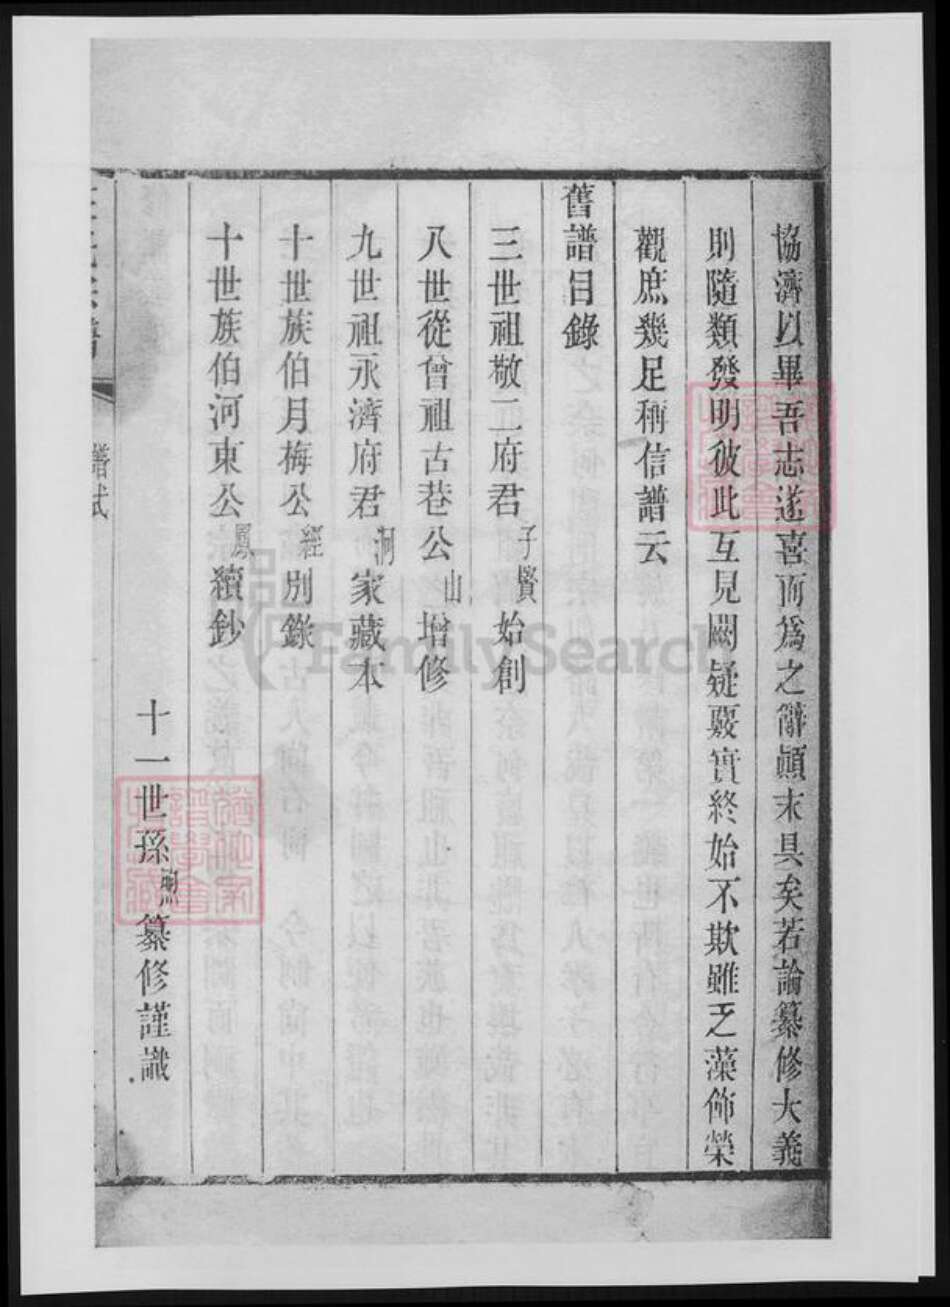 協濟以畢吾志遂喜而爲之辭顚末具矣若論纂修大義
則隨類發明彼此互見闕疑覈實終始不欺雖乏藻飾榮
觀庶幾足稱信譜云
舊譜目錄
三世祖敬二府君子賢始創
八世從曾祖古巷公山增修
九世祖永濟府君洞家藏本
十世族伯月梅公經別錄
十世族伯河東公鳳續鈔
十一世孫纂修謹識
FamilySearch